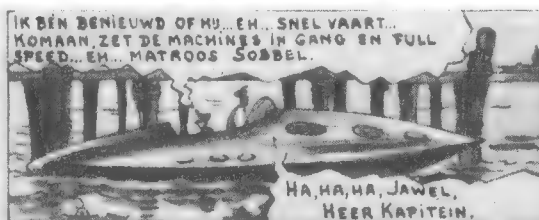 IK BEN BENIEUWD OF HIJ...EH...SNEL VAART...
KOMAAN, ZET DE MACHINES IN GANG EN FULL
SPEED...EH... MATROOS SOBBEL.
HA, HA, HA, JAWEL,
HEER KAPITEIN.